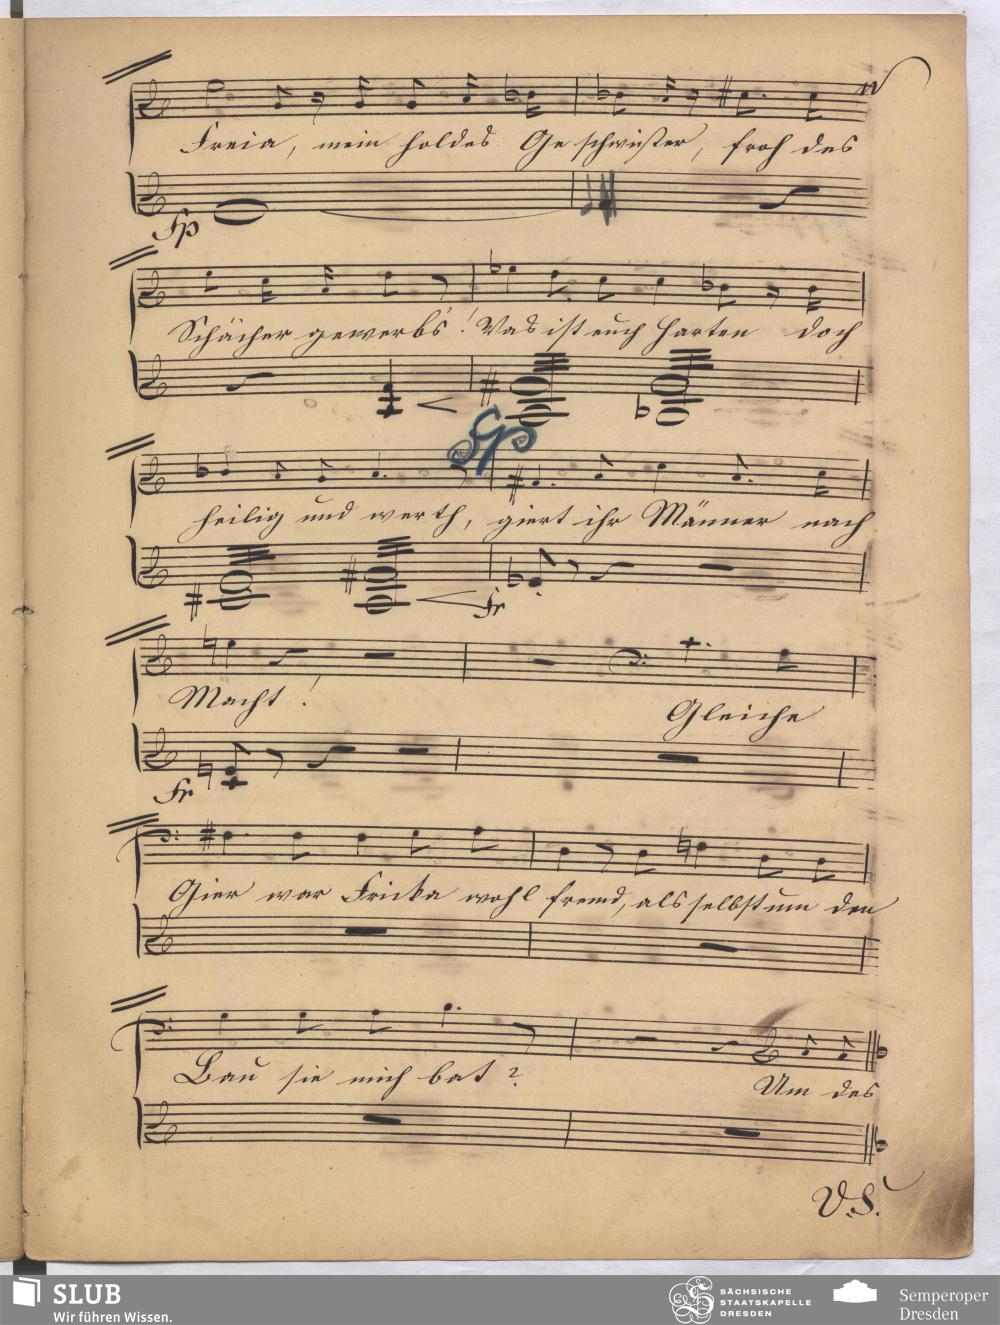 Freia, mein holdes Geschwister, froh des
fp
Schächer gewerbs! Was ist euch Harten doch
heilig und werth, giert ihr Männer nach
Macht! Gleiche
Gier war Fricka wohl fremd, als selbst um den
Bau sie mich bat? Um des
V.S.
SLUB
Wir führen Wissen.
SÄCHSISCHE
STAATSKAPELLE
DRESDEN
Semperoper
Dresden